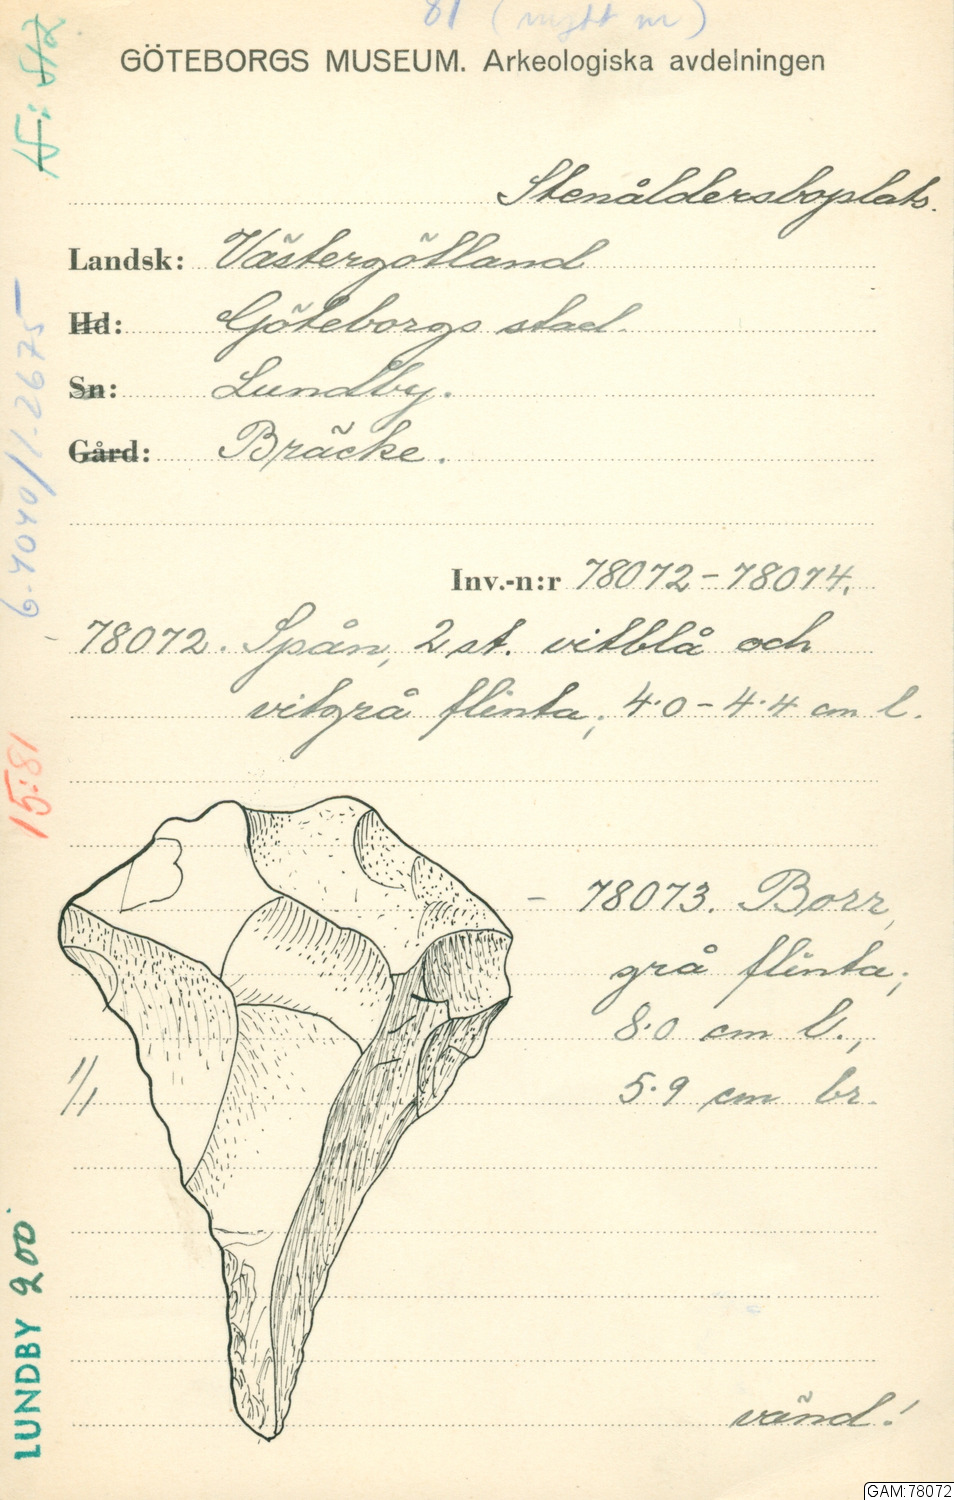 81 (nytt nr)
GÖTEBORGS MUSEUM. Arkeologiska avdelningen
Stenåldersboplats.
Landsk: Västergötland
Hd: Göteborgs stad.
Sn: Lundby.
Gård: Bräcke.
Inv.-n:r 78072-78074.
78072. Spån, 2 st. vitblå och
vitgrå flinta; 4.0-4.4 cm l.
- 78073. Borr,
grå flinta;
8.0 cm l.,
1/1
5.9 cm br.
vänd!
6-4040/1-2675
15:81
LUNDBY 200
GAM:78072